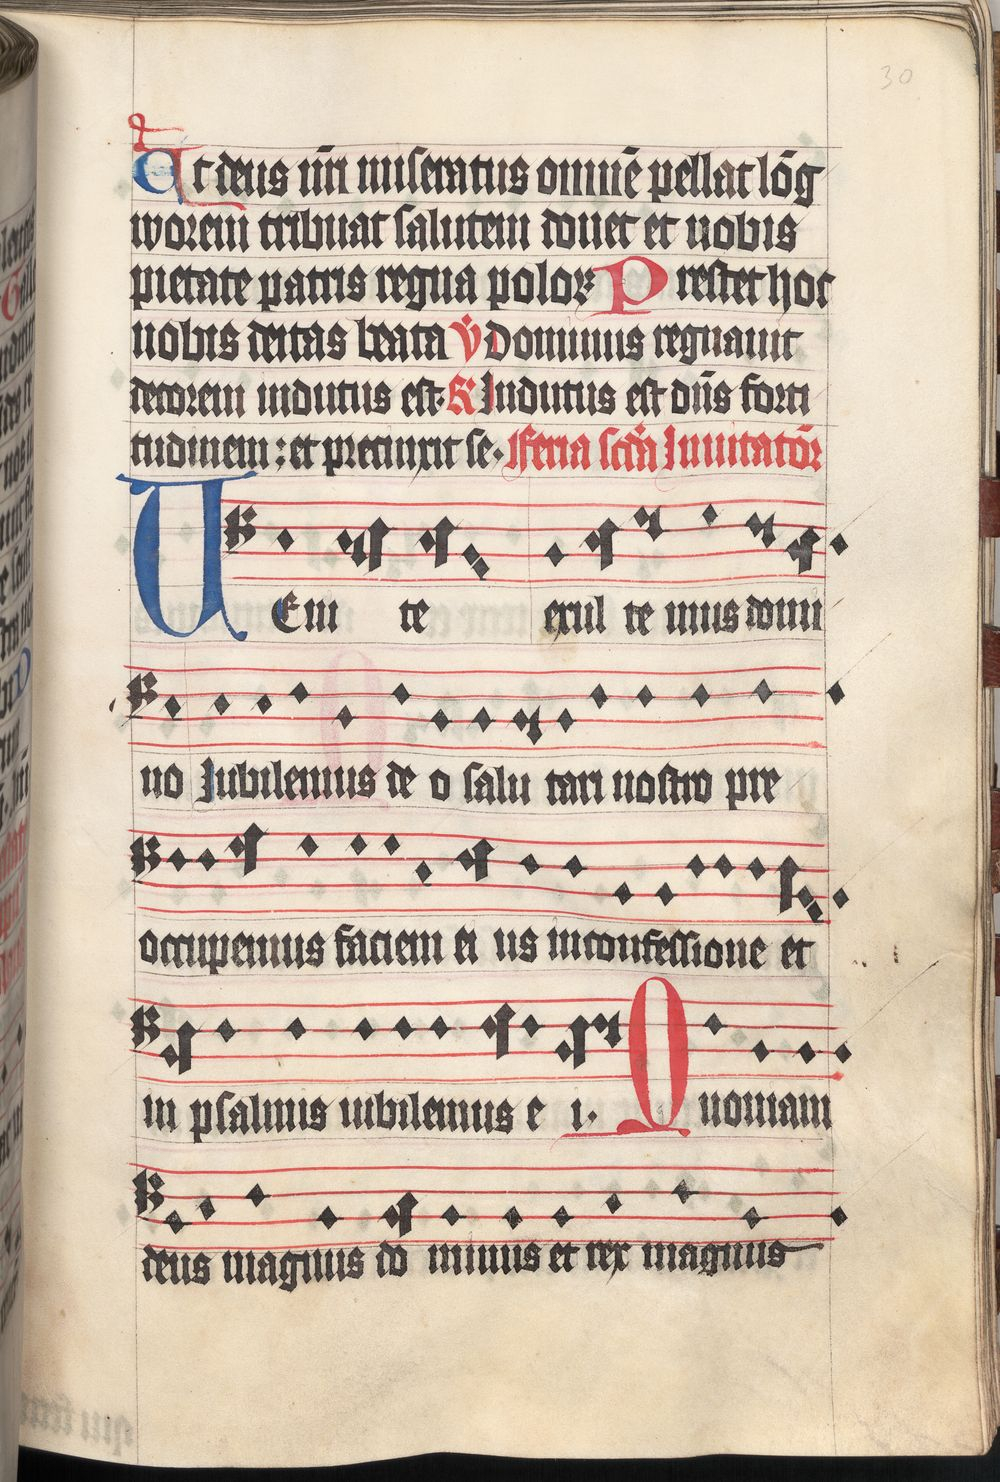 30
Ut deus nr̄i miseratus omnē pellat lāg
worem tribuat salutem donet et nobis
pietate patris regna polorꝝ Prestet hoc
nobis deitas beata V̄ Dominus regnauit
decorem indutus est. R Indutus est dn̄s forti
tudinem : et precinxit se. Feria scd̄a Inuitatōr
UEni te exul te mus domi
no Iubilemus de o salu tari nostro pre
occupemus faciem ei us inconfessione et
in psalmis iubilemus e i. Quoniam
deus magnus do minus et rex magnus